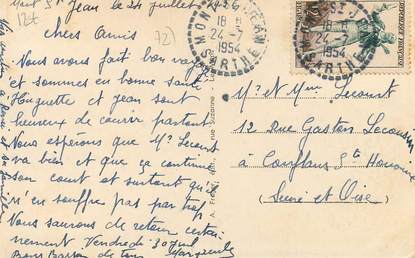 Jean le 24 juillet 1954
12€
72
chers Amis
Nous avons fait bon voyage
et sommes en bonne santé
Huguette et jean sont
heureux de courir partout
Nous espérons que Mr Lecourt
va bien et que ça continue
son court et surtout qu'il
n'en souffre pas par trop
Nous saurons de retour certai-
nement Vendredi 30 Juil
Bons Baisers de tous Marguerite
18 H
24-7
1954
SARTHE
18 H
24-7
1954
SARTHE
REPUBLIQUE FRANÇAISE
rue Suzanne
Mr et Mme Lecourt
12 Rue Gaston
à Conflans Ste Honorine
(Seine et Oise)